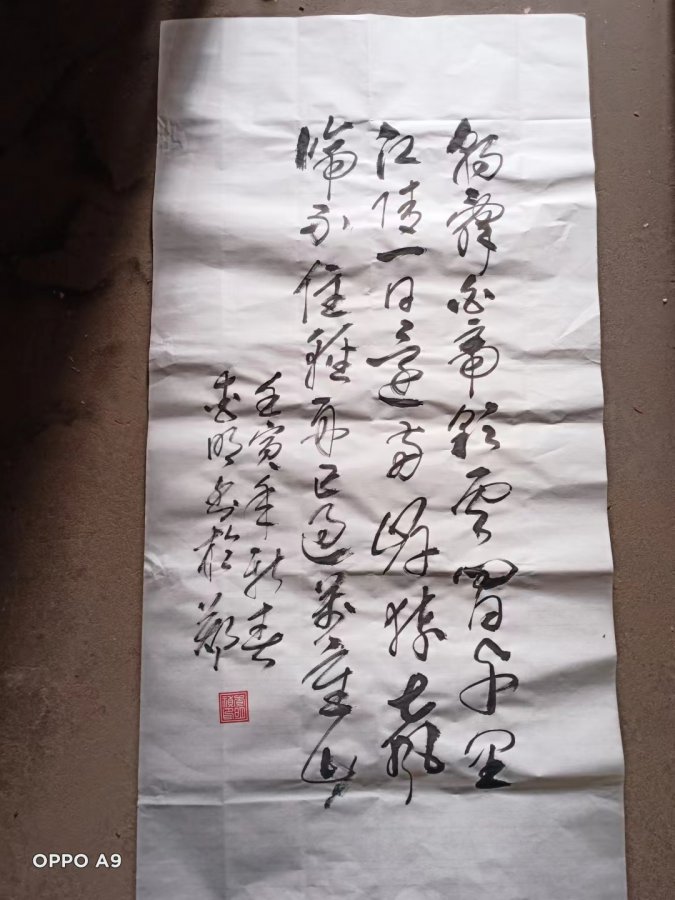 朝辭白帝彩雲間千里
江陵一日還兩岸猿聲
啼不住輕舟已過萬重山
壬寅年新春
明书於鄭
OPPO A9